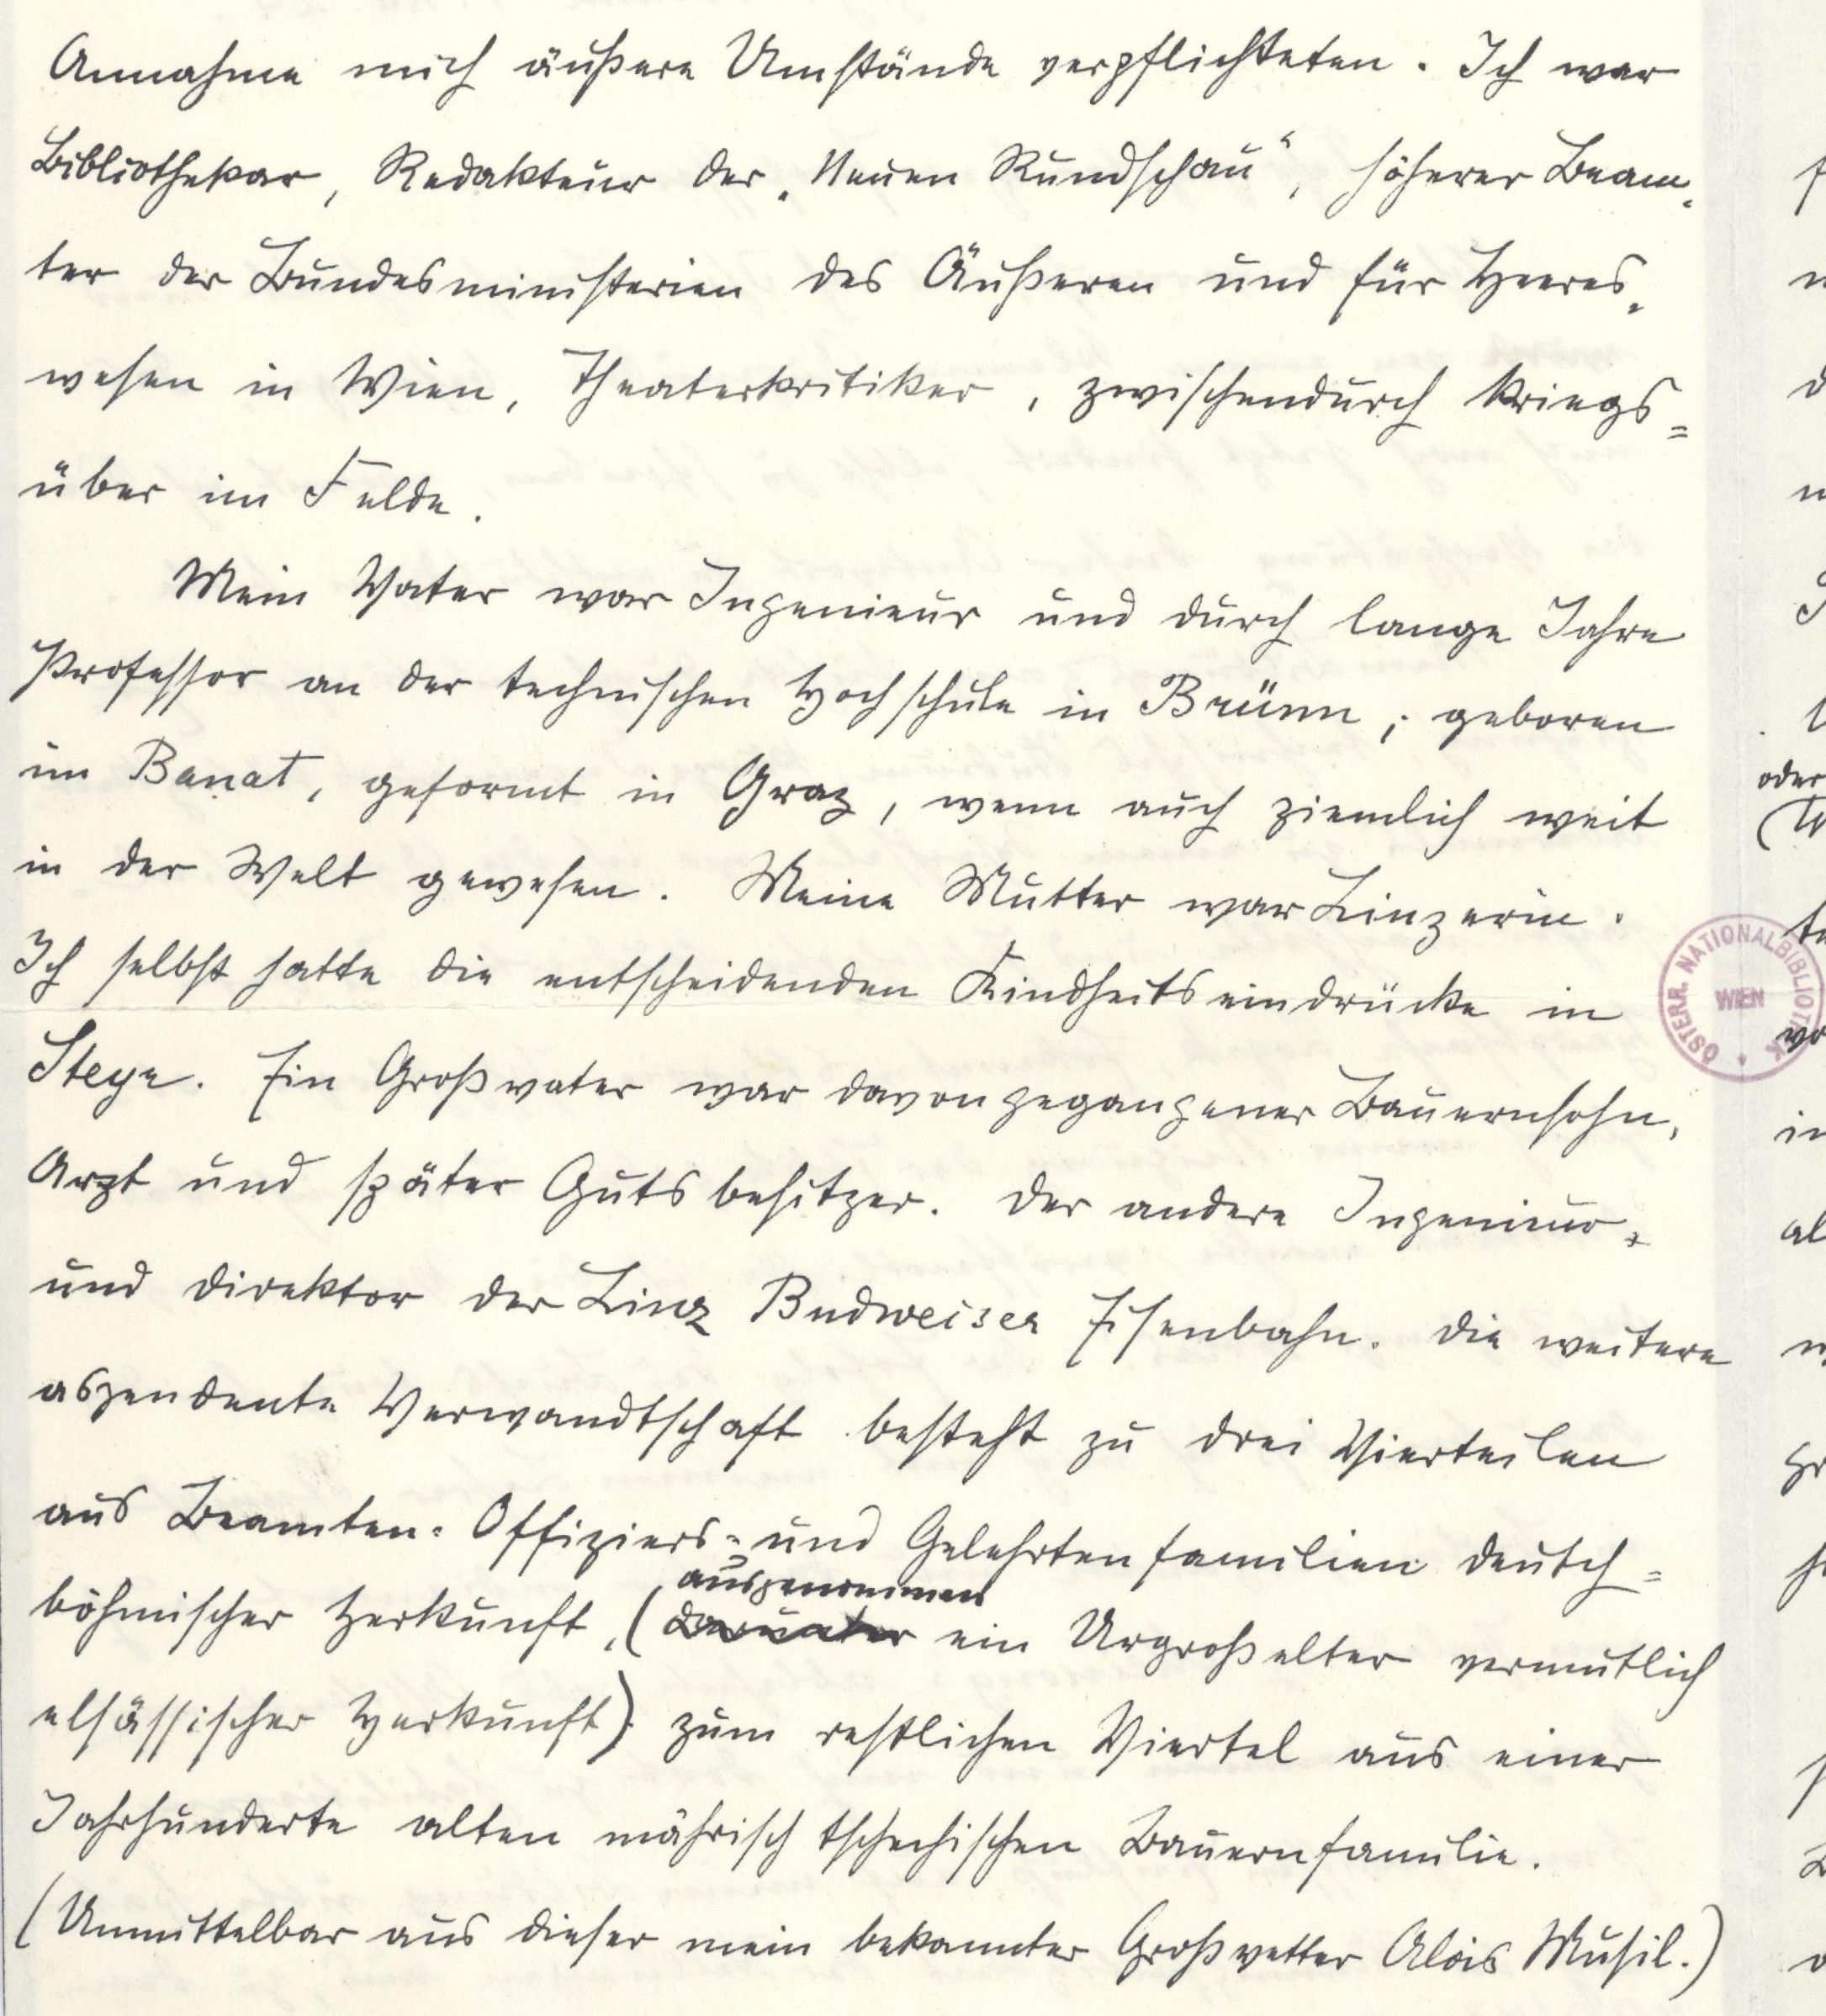 Annahme mich äußere Umstände verpflichteten. Ich war
Bibliothekar, Redakteur der „Neuen Rundschau“, höherer Beam-
ter der Bundesministerien des Äußeren und für Heeres-
wesen in Wien, Theaterkritiker, zwischendurch kriegs=
über im Felde.
Mein Vater war Ingenieur und durch lange Jahre
Professor an der technischen Hochschule in Brünn; geboren
im Banat, geformt in Graz, wenn auch ziemlich weit
in der Welt gewesen. Meine Mutter war Linzerin.
Ich selbst hatte die entscheidenden Kindheitseindrücke in
Steyr. Ein Großvater war davongegangener Bauernsohn,
Arzt und später Gutsbesitzer. Der andere Ingenieur
und Direktor der Linz Budweiser Eisenbahn. Die weitere
aszendente Verwandtschaft besteht zu drei Vierteilen
aus Beamten- Offiziers- und Gelehrtenfamilien deutsch=
ausgenommen
böhmischer Herkunft, (darunter ein Urgroßelter vermutlich
elsässischer Herkunft) zum restlichen Viertel aus einer
Jahrhunderte alten mährisch tschechischen Bauernfamilie.
(Unmittelbar aus dieser mein bekannter Großvetter Alois Musil.)
oder
ÖSTERR. NATIONALBIBLIOTHEK
WIEN